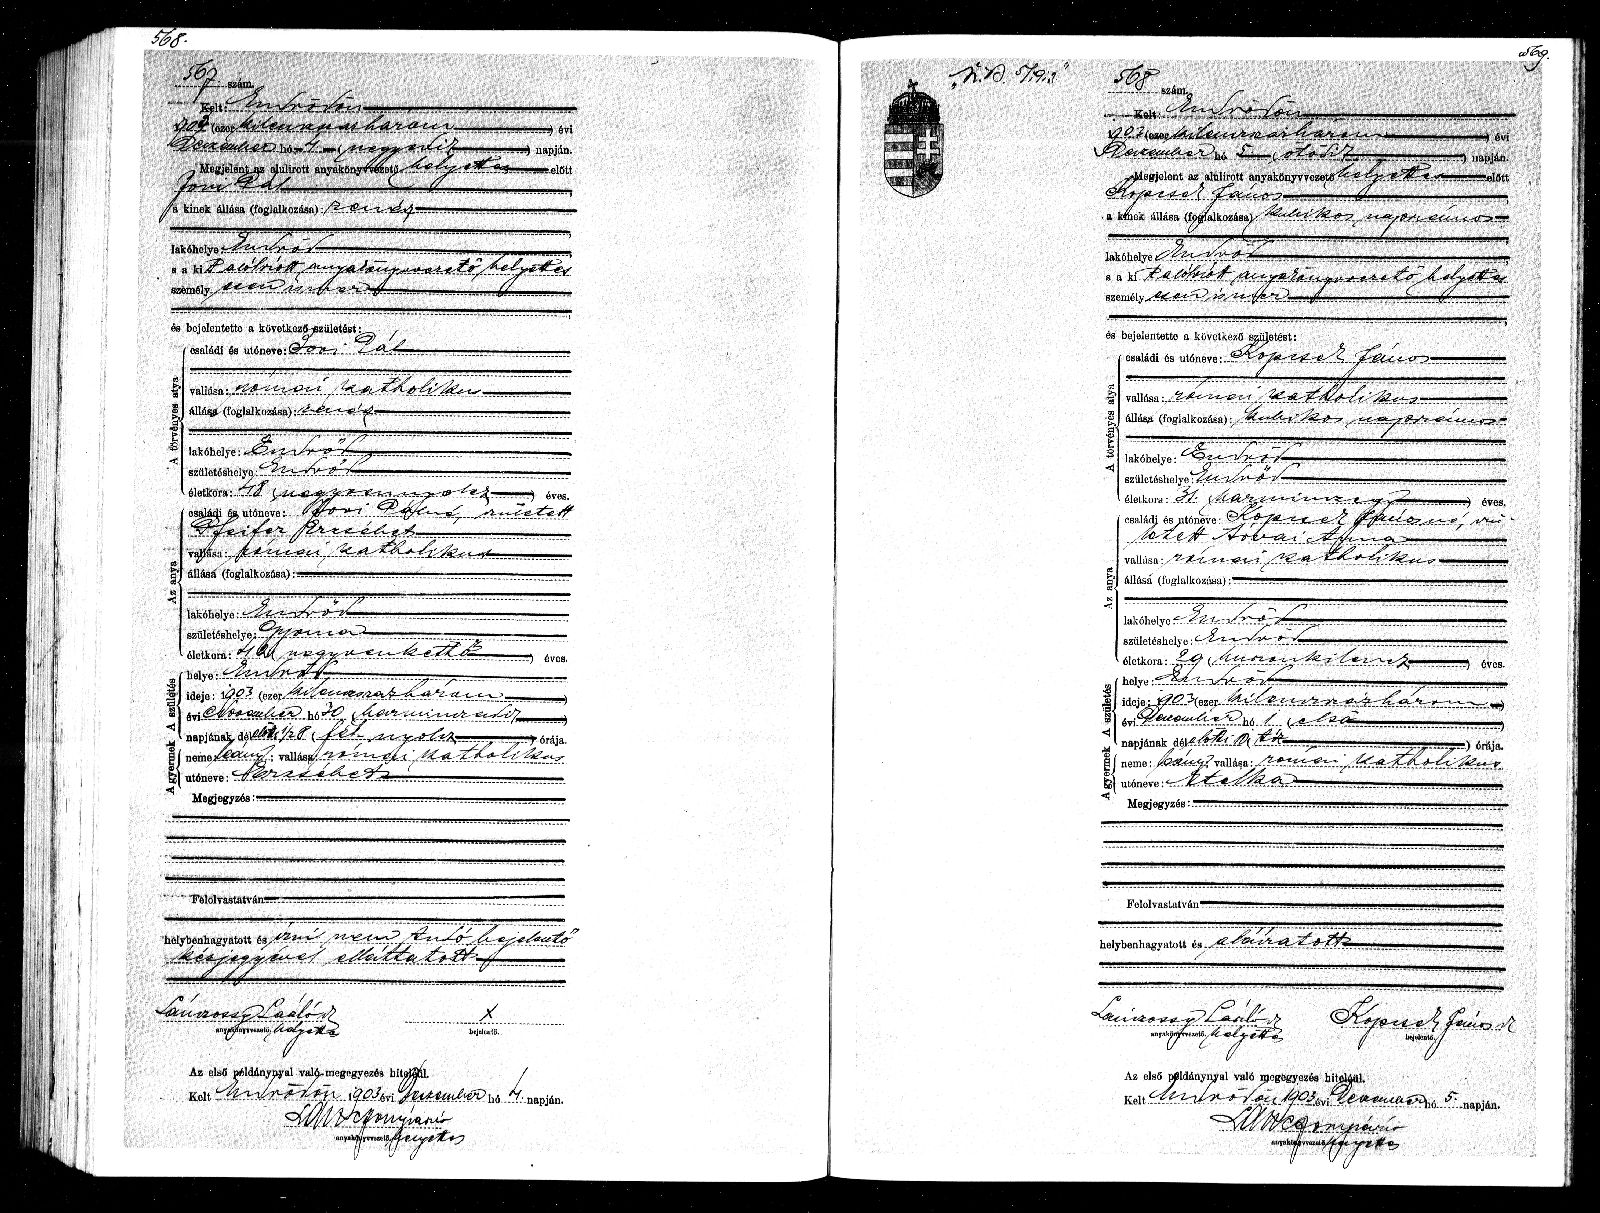 568.
567 szám.
Kelt: Endrődön
1903 (ezer kilencszázhárom) évi
December hó 4 (negyedik) napján.
Megjelent az alulírott anyakönyvvezető helyettes előtt
Jovi Pál
a kinek állása (foglalkozása)
lakóhelye: Endrőd
s a kit alólírott anyakönyvvezető helyettes
személyesen ismer
és bejelentette a következő születést:
A törvényes atya
családi és utóneve: Jovi Pál
vallása: római katholikus
állása (foglalkozása):
lakóhelye: Endrőd
születéshelye: Endrőd
életkora: 48 (negyvennyolcz) éves.
Az anya
családi és utóneve: Jovi Pálné, született
Pfeifer Erzsébet
vallása: római katholikus
állása (foglalkozása):
lakóhelye: Endrőd
születéshelye: Gyoma
életkora: 42 (negyvenkettő) éves.
A születés
helye: Endrőd
ideje: 1903 (ezer kilencszázhárom)
évi November hó 30 (harminczadik)
napjának délelőtti 1/2 8 (fél nyolcz) órája.
A gyermek
neme: leány; vallása: római katholikus
utóneve: Erzsébet
Megjegyzés:
Felolvastatván
helybenhagyatott és írni nem tudó bejelentő
kézjegyével elláttatott
László
anyakönyvvezető helyettes
x
bejelentő.
Az első példánynyal való megegyezés hiteléül.
Kelt Endrődön 1903 évi December hó 4. napján.
anyakönyvvezető helyettes
569.
568 szám.
Kelt: Endrődön
1903 (ezer kilencszázhárom) évi
December hó 5 (ötödik) napján.
Megjelent az alulírott anyakönyvvezető helyettes előtt
Kopcsek János
a kinek állása (foglalkozása) kubikos napszámos
lakóhelye: Endrőd
s a kit alólírott anyakönyvvezető helyettes
személyesen ismer
és bejelentette a következő születést:
A törvényes atya
családi és utóneve: Kopcsek János
vallása: római katholikus
állása (foglalkozása): kubikos napszámos
lakóhelye: Endrőd
születéshelye: Endrőd
életkora: 31 (harminczegy) éves.
Az anya
családi és utóneve: Kopcsek Jánosné, szü-
letett Arvai Anna
vallása: római katholikus
állása (foglalkozása):
lakóhelye: Endrőd
születéshelye: Endrőd
életkora: 29 (huszonkilencz) éves.
A születés
helye: Endrőd
ideje: 1903 (ezer kilencszázhárom)
évi December hó 1 (első)
napjának délelőtti 10 (tíz) órája.
A gyermek
neme: leány; vallása: római katholikus
utóneve: Etelka
Megjegyzés:
Felolvastatván
helybenhagyatott és aláíratott
László
anyakönyvvezető helyettes
Kopcsek János
bejelentő.
Az első példánynyal való megegyezés hiteléül.
Kelt Endrődön 1903 évi December hó 5. napján.
anyakönyvvezető helyettes